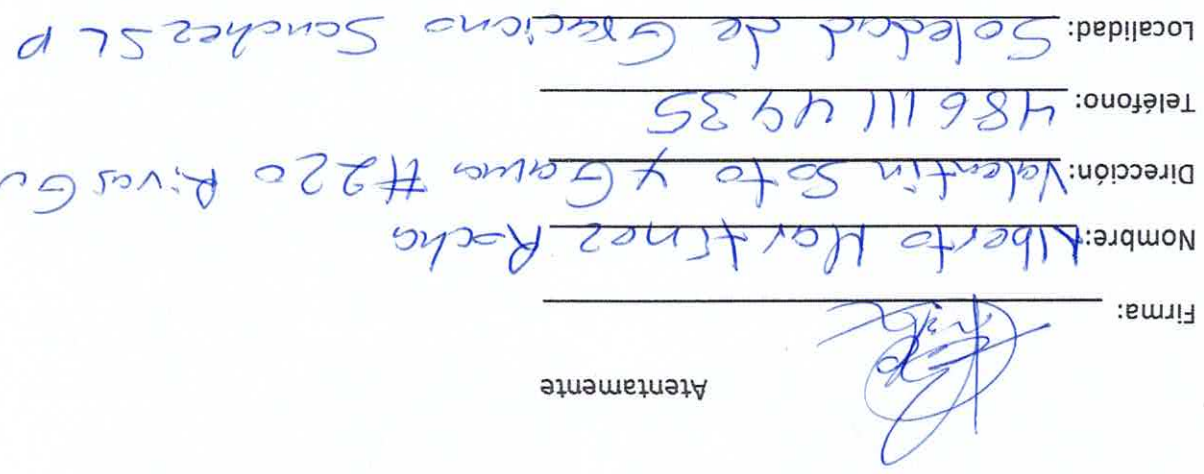 Atentamente
Firma:
Nombre: Alberto Martínez Rocha
Dirección: Valentin Soto y Gama #220 Rivas Gu
Teléfono: 486 111 4935
Localidad: Soledad de Graciano Sanchez SLP